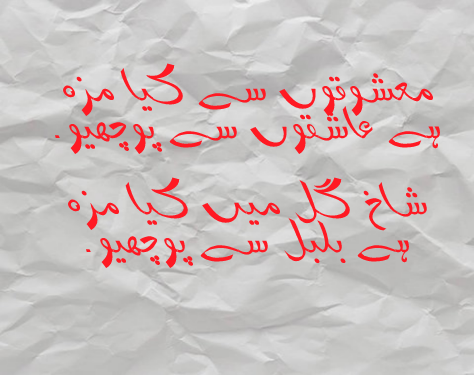 معشوقوں سے کیا مزہ
ہے عاشقوں سے پوچھیو.
شاخ گل میں کیا مزہ
ہے بلبل سے پوچھیو.